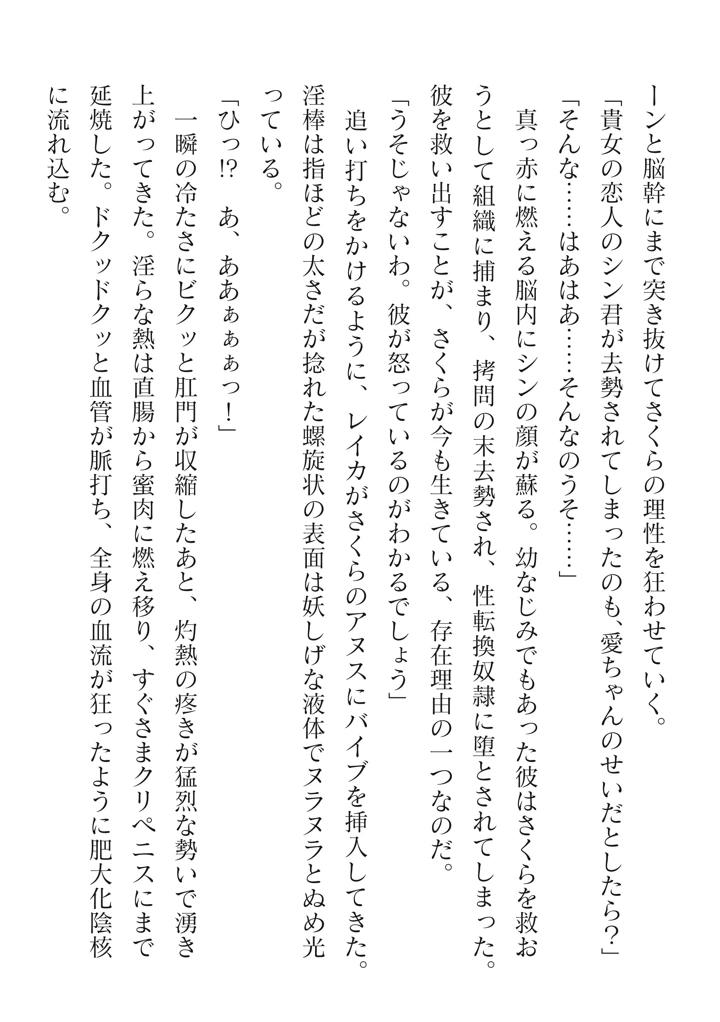 ーンと脳幹にまで突き抜けてさくらの理性を狂わせていく。
「貴女の恋人のシン君が去勢されてしまったのも、愛ちゃんのせいだとしたら？」
「そんな……はあはあ……そんなのうそ……」
　真っ赤に燃える脳内にシンの顔が蘇る。幼なじみでもあった彼はさくらを救お
うとして組織に捕まり、拷問の末去勢され、性転換奴隷に堕とされてしまった。
彼を救い出すことが、さくらが今も生きている、存在理由の一つなのだ。
「うそじゃないわ。彼が怒っているのがわかるでしょう」
　追い打ちをかけるように、レイカがさくらのアヌスにバイブを挿入してきた。
淫棒は指ほどの太さだが捻れた螺旋状の表面は妖しげな液体でヌラヌラとぬめ光
っている。
「ひっ!?　あ、ああぁぁぁっ！」
　一瞬の冷たさにビクッと肛門が収縮したあと、灼熱の疼きが猛烈な勢いで湧き
上がってきた。淫らな熱は直腸から蜜肉に燃え移り、すぐさまクリペニスにまで
延焼した。ドクッドクッと血管が脈打ち、全身の血流が狂ったように肥大化陰核
に流れ込む。